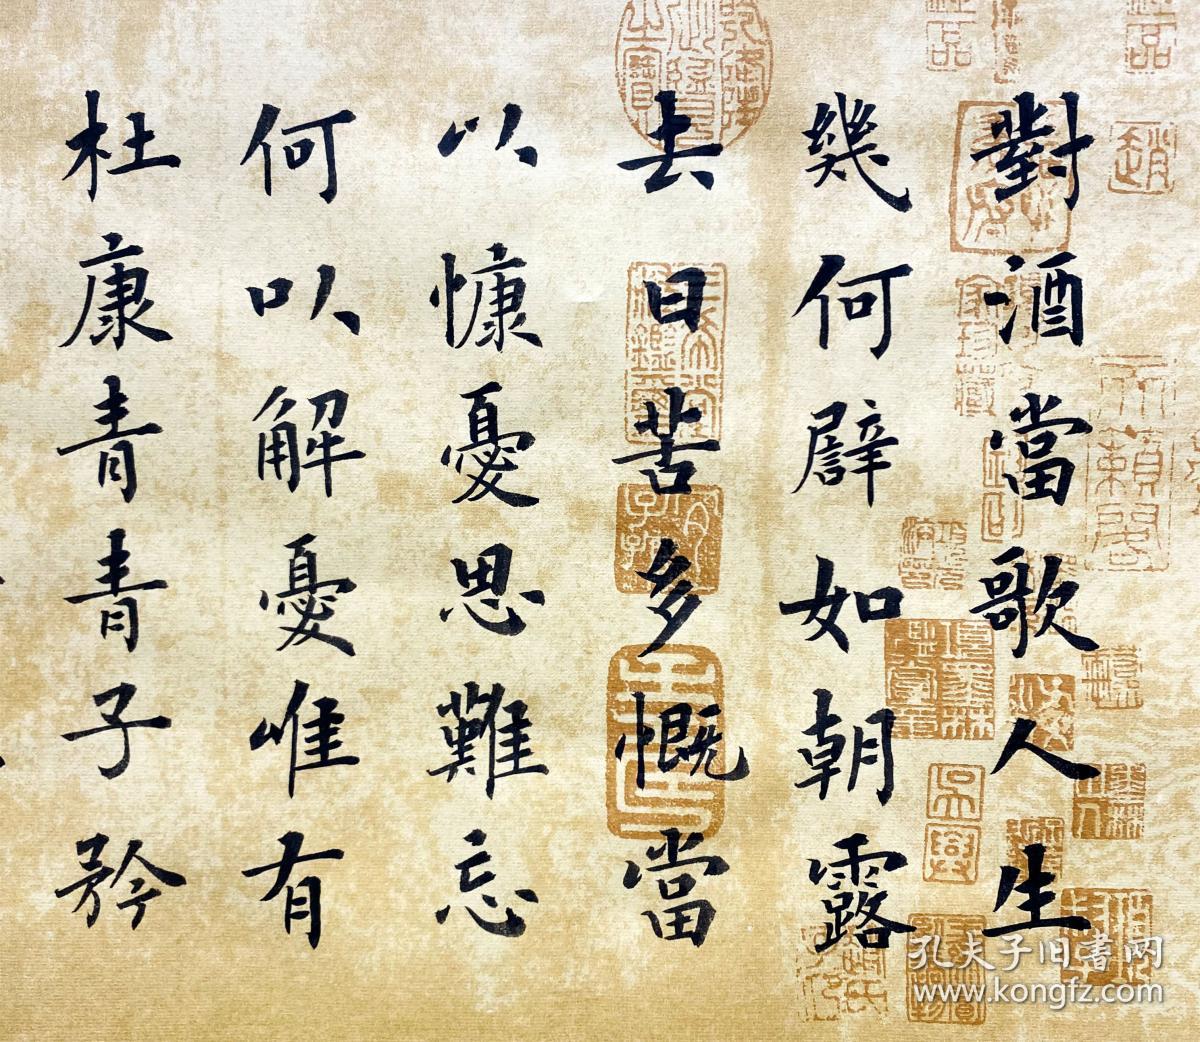 對酒當歌人生
幾何譬如朝露
去日苦多慨當
以慷憂思難忘
何以解憂唯有
杜康青青子衿
孔夫子旧书网
www.kongfz.com